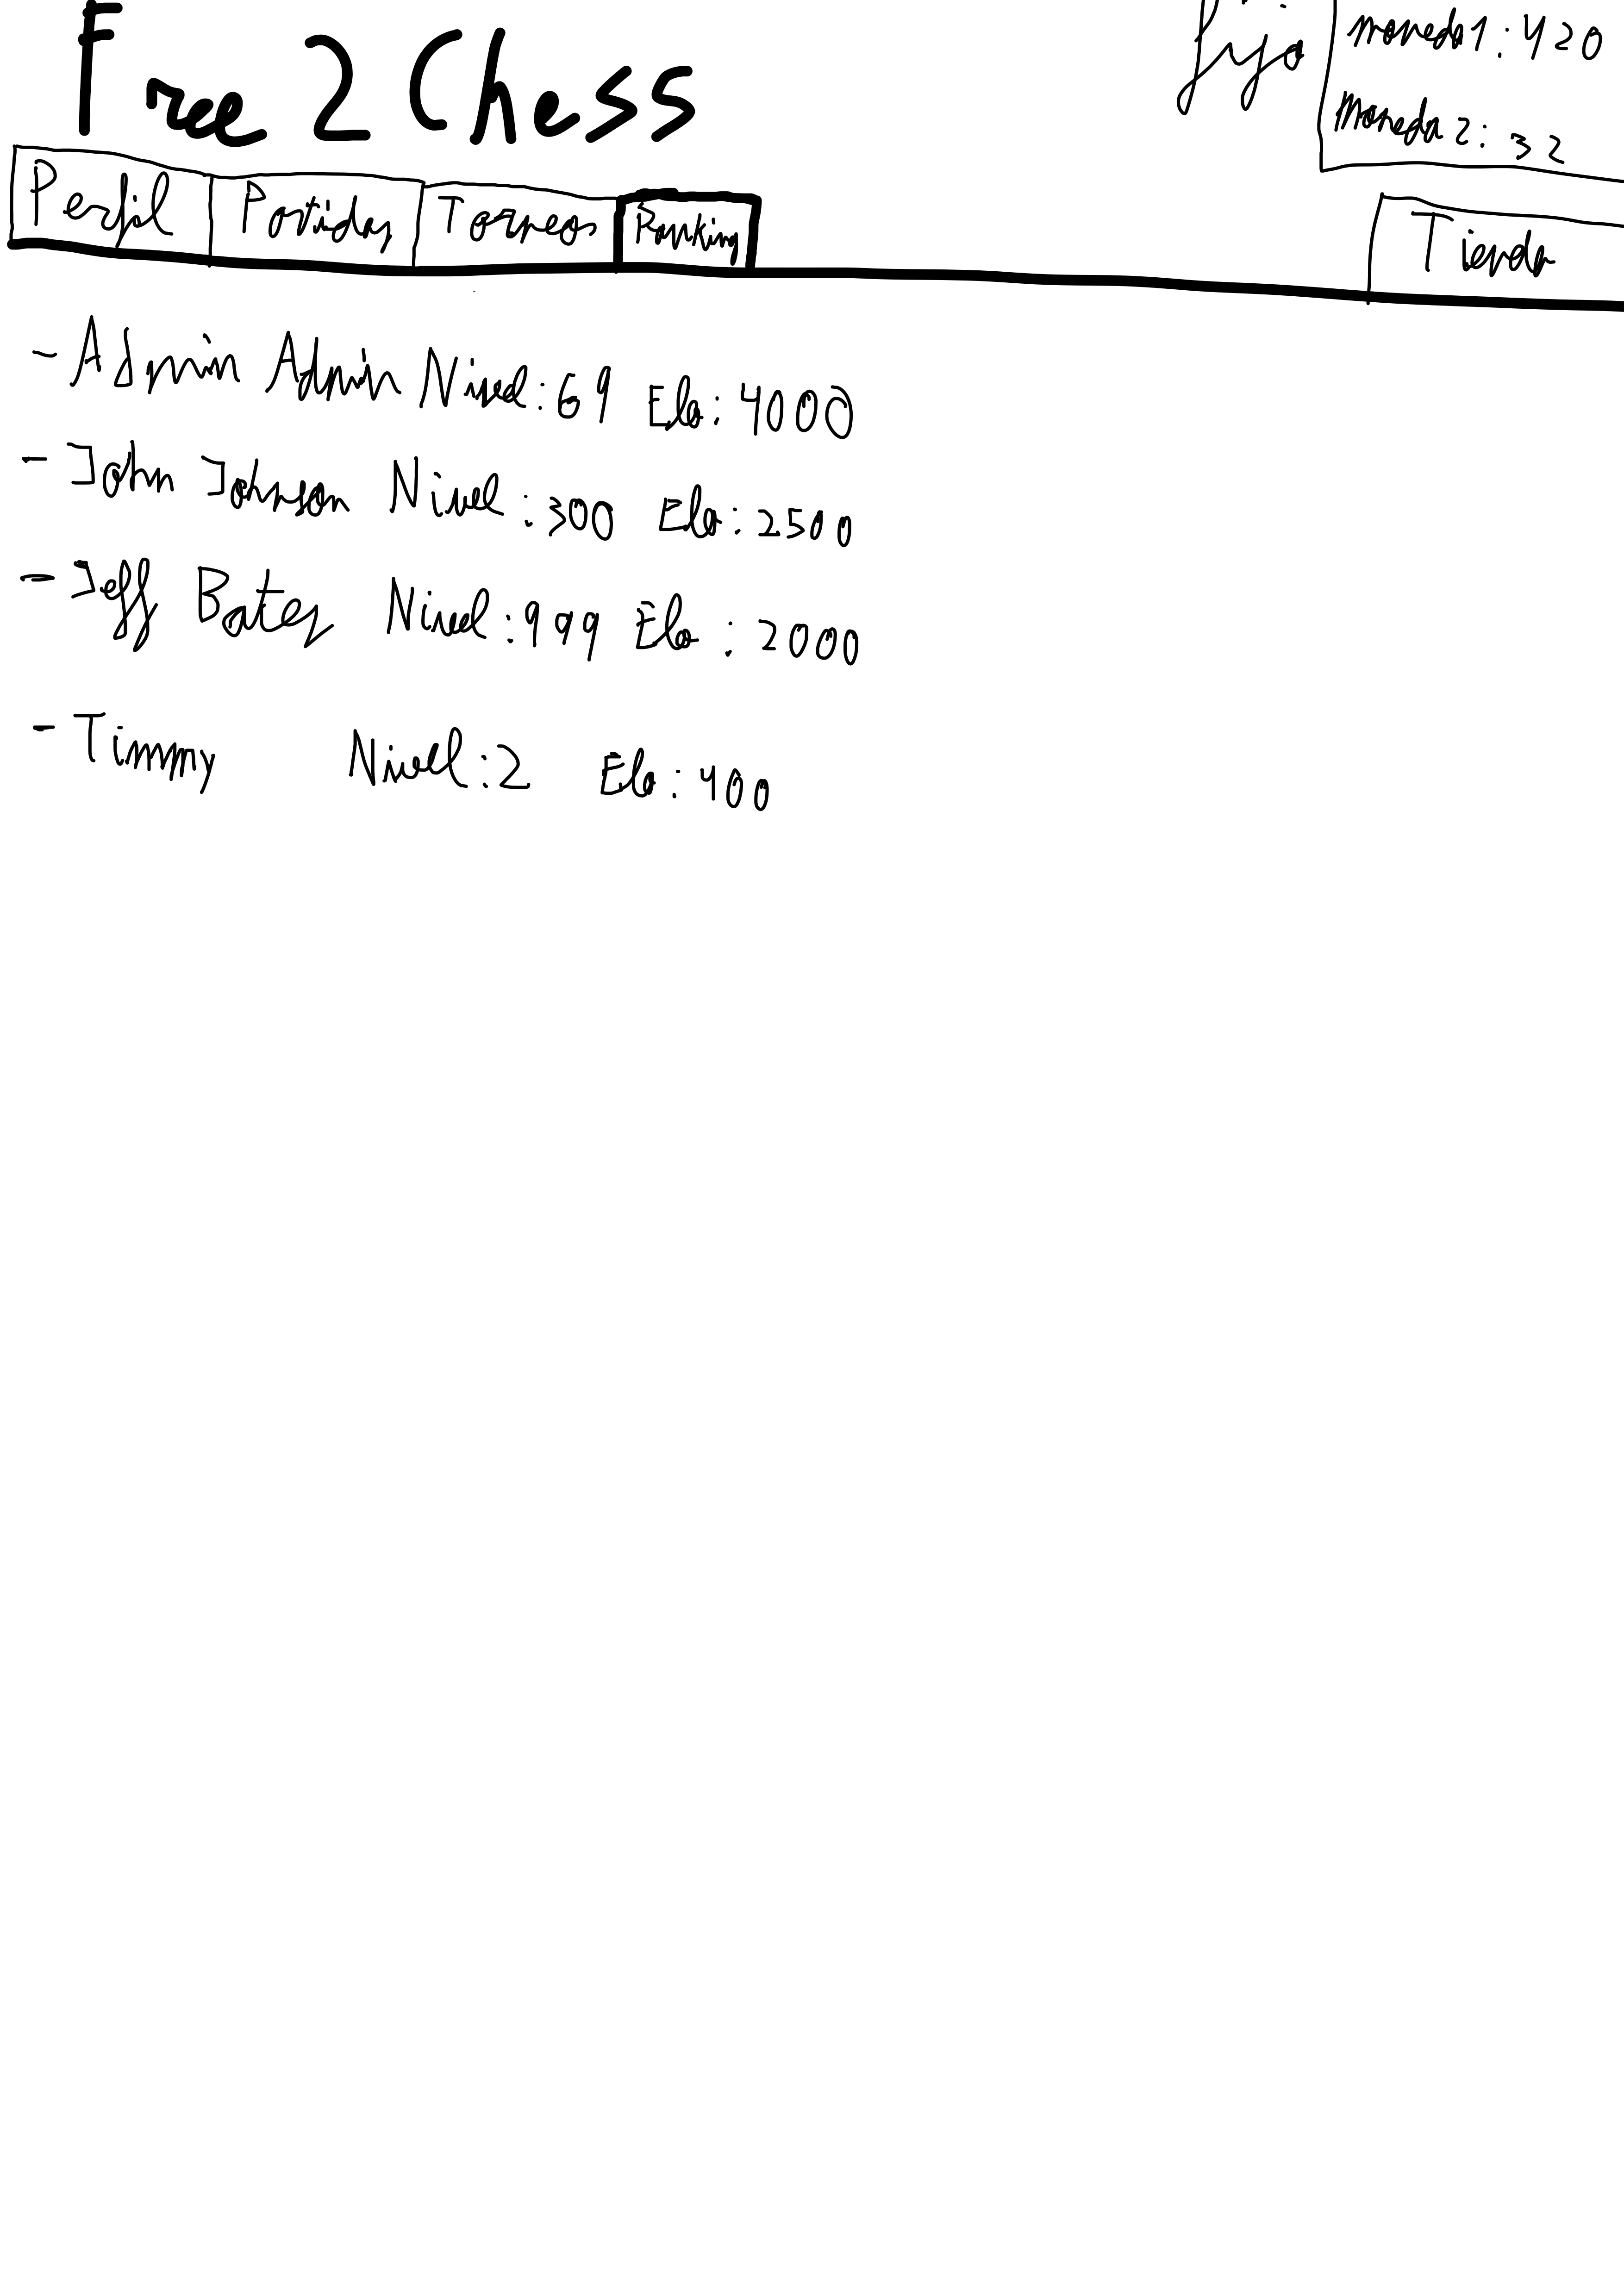 Free 2 Chess
jija
moneda1: 420
Moneda 2: 32
Perfil
Partidas
Torneos
Ranking
Tienda
- Admin Admin Nivel: 69 Elo: 4000
- John Johnson Nivel: 300 Elo: 2500
- Jeff Batey Nivel: 999 Elo: 2000
- Timmy Nivel: 2 Elo: 400